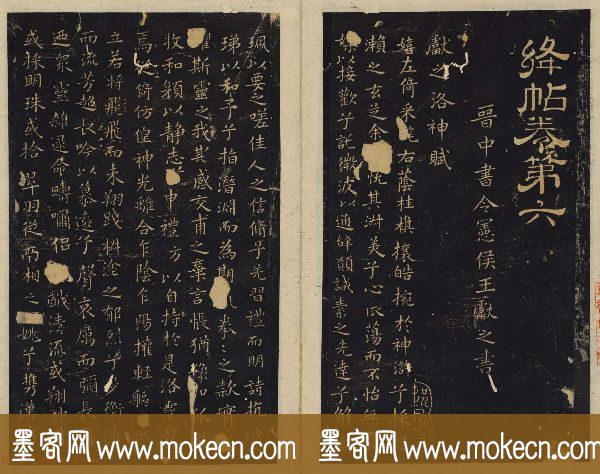 絳帖卷第六
晉中書令憲侯王獻之書
獻之洛神賦
嬉左倚采旄右蔭桂旗攘皓捥於神滸兮採
瀨之玄芝余悅其淑美兮心振蕩而不怡無
媒以接歡兮託微波以通辭願誠素之先達兮解
珮以要之嗟佳人之信脩兮羌習禮而明詩抗
珶以和予兮指潛淵而為期拳〻之款實
懼斯靈之我其感交甫之棄言悵猶豫和狐
收和顏以静志申禮方以自持於是洛靈
焉徙倚仿偟神光離合乍陰乍陽擢輕軀
立若將飛飛而未翔踐椒塗之郁烈兮步衡
而流芳超長吟以慕遠兮聲哀厲而彌長
迺眾靈雜遝命疇嘯侶戲清流或翔神
或採明珠或拾翠羽從南相之姚兮攜漢
墨客网www.mokecn.com 墨客网www.mokecn.com